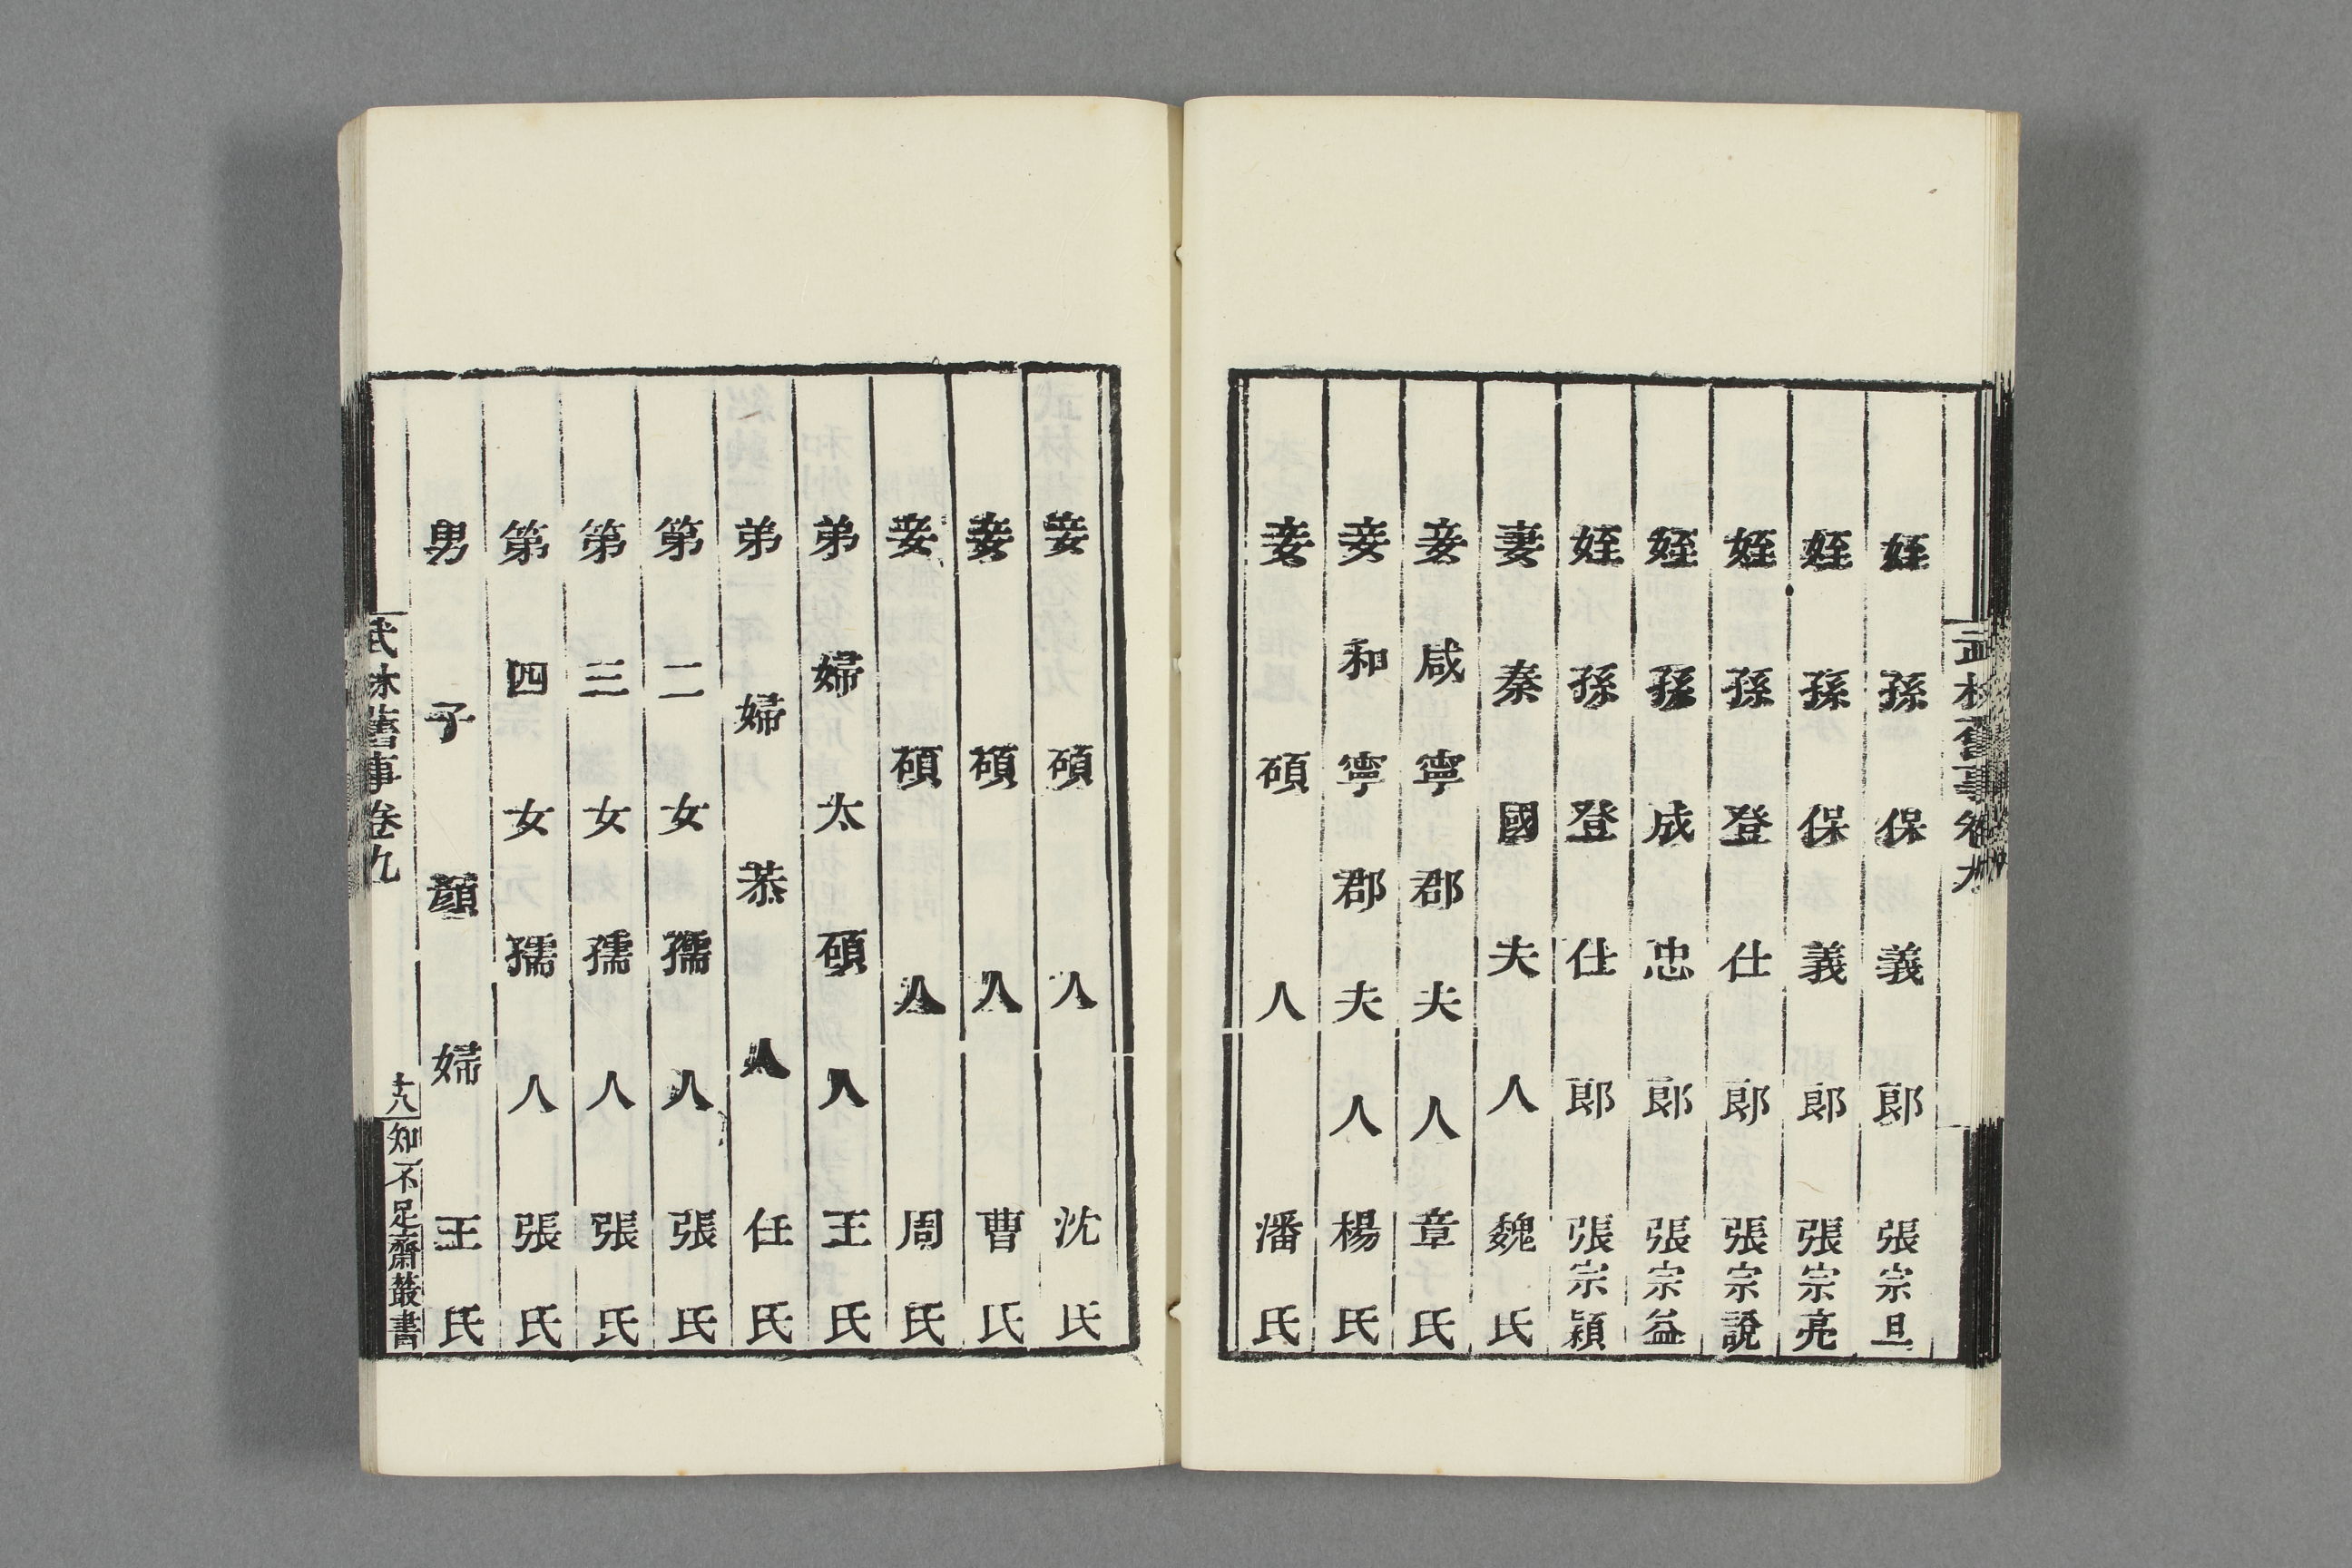 武林舊事卷九
姪孫保義郎張宗旦
姪孫保義郎張宗亮
姪孫登仕郎張宗說
姪孫成忠郎張宗益
姪孫登仕郎張宗穎
妻秦國夫人魏氏
妾咸寧郡夫人章氏
妾和寧郡夫人楊氏
妾碩人潘氏
妾碩人沈氏
妾碩人曹氏
妾碩人周氏
弟婦太碩人王氏
弟婦恭人任氏
第二女孺人張氏
第三女孺人張氏
第四女孺人張氏
男子顏婦王氏
武林舊事卷九
十八
知不足齋叢書